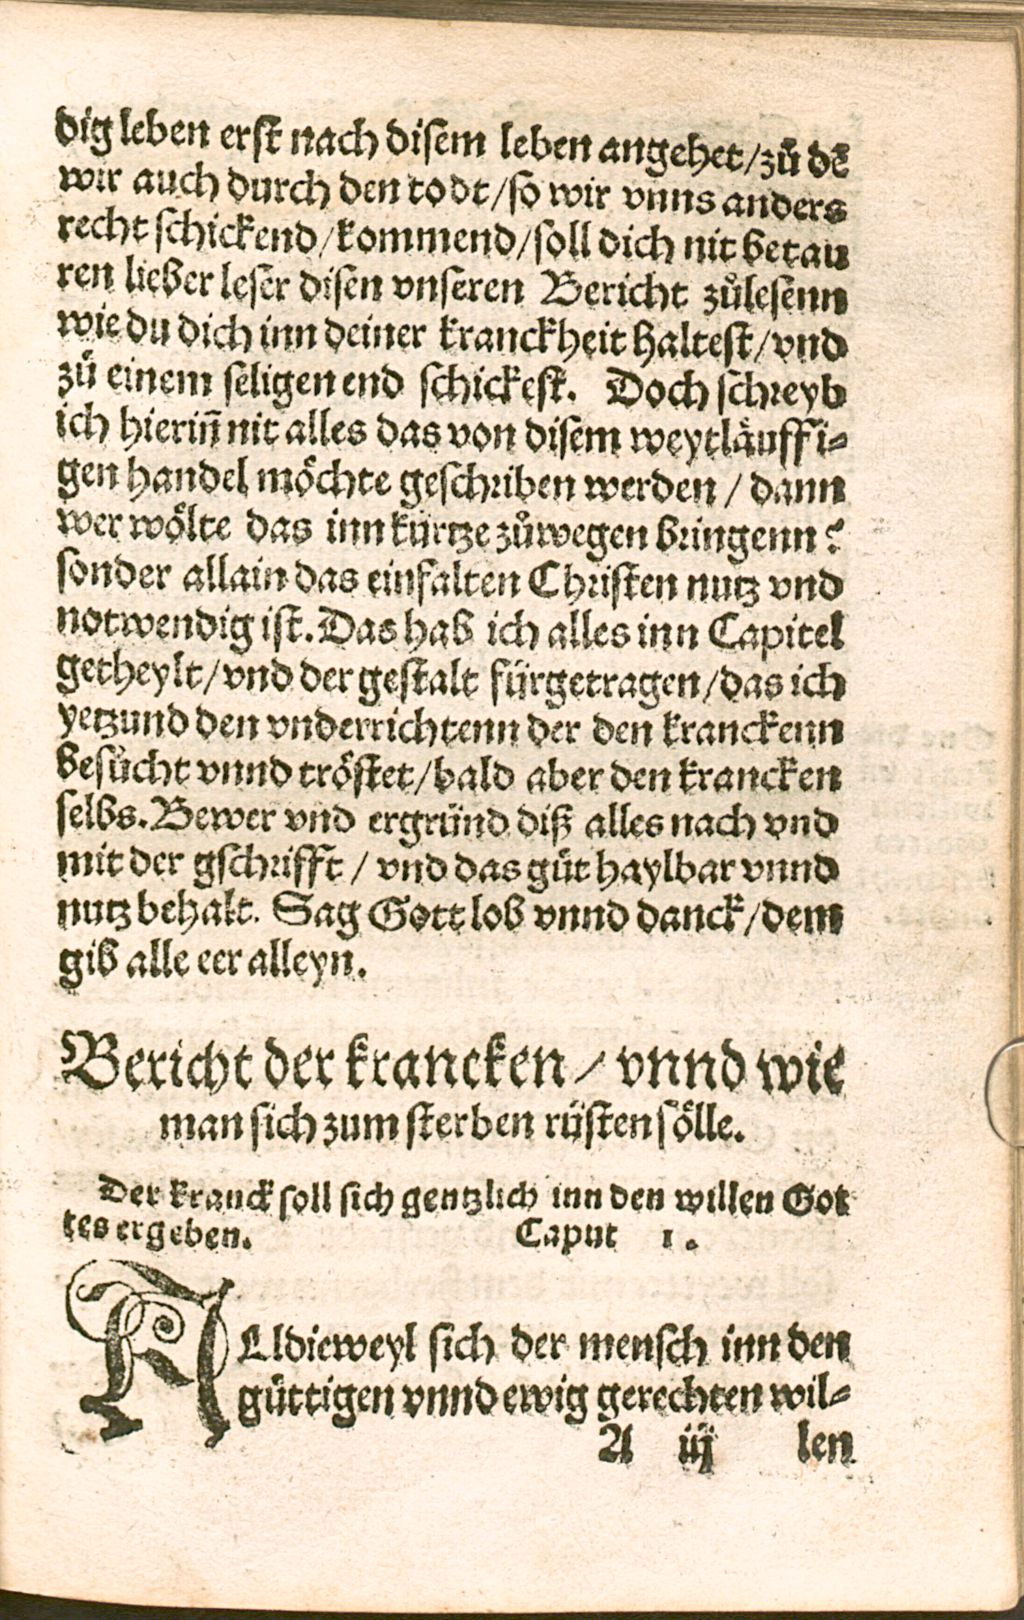 dig leben erst nach disem leben angehet/zů dē
wir auch durch den todt/so wir vnns anders
recht schickend/kommend/soll dich nit betau
ren lieber leser disen vnseren Bericht zůlesenn
wie du dich inn deiner kranckheit haltest/vnd
zů einem seligen end schickest. Doch schreyb
ich hierin̄ nit alles das von disem weytläuffi-
gen handel möchte geschriben werden / dann
wer wölte das inn kürtze zůwegen bringenn?
sonder allain das einfalten Christen nutz vnd
notwendig ist. Das hab ich alles inn Capitel
getheylt/vnd der gestalt fürgetragen/das ich
yetzund den vnderrichtenn der den kranckenn
besůcht vnnd tröstet/bald aber den krancken
selbs. Bewer vnd ergründ diß alles nach vnd
mit der gschrifft / vnd das gůt haylbar vnnd
nutz behalt. Sag Gott lob vnnd danck/dem
gib alle eer alleyn.
Bericht der krancken / vnnd wie
man sich zum sterben rüsten sölle.
Der kranck soll sich gentzlich inn den willen Got
tes ergeben. Caput 1.
ALldieweyl sich der mensch inn den
güttigen vnnd ewig gerechten wil-
A iij len